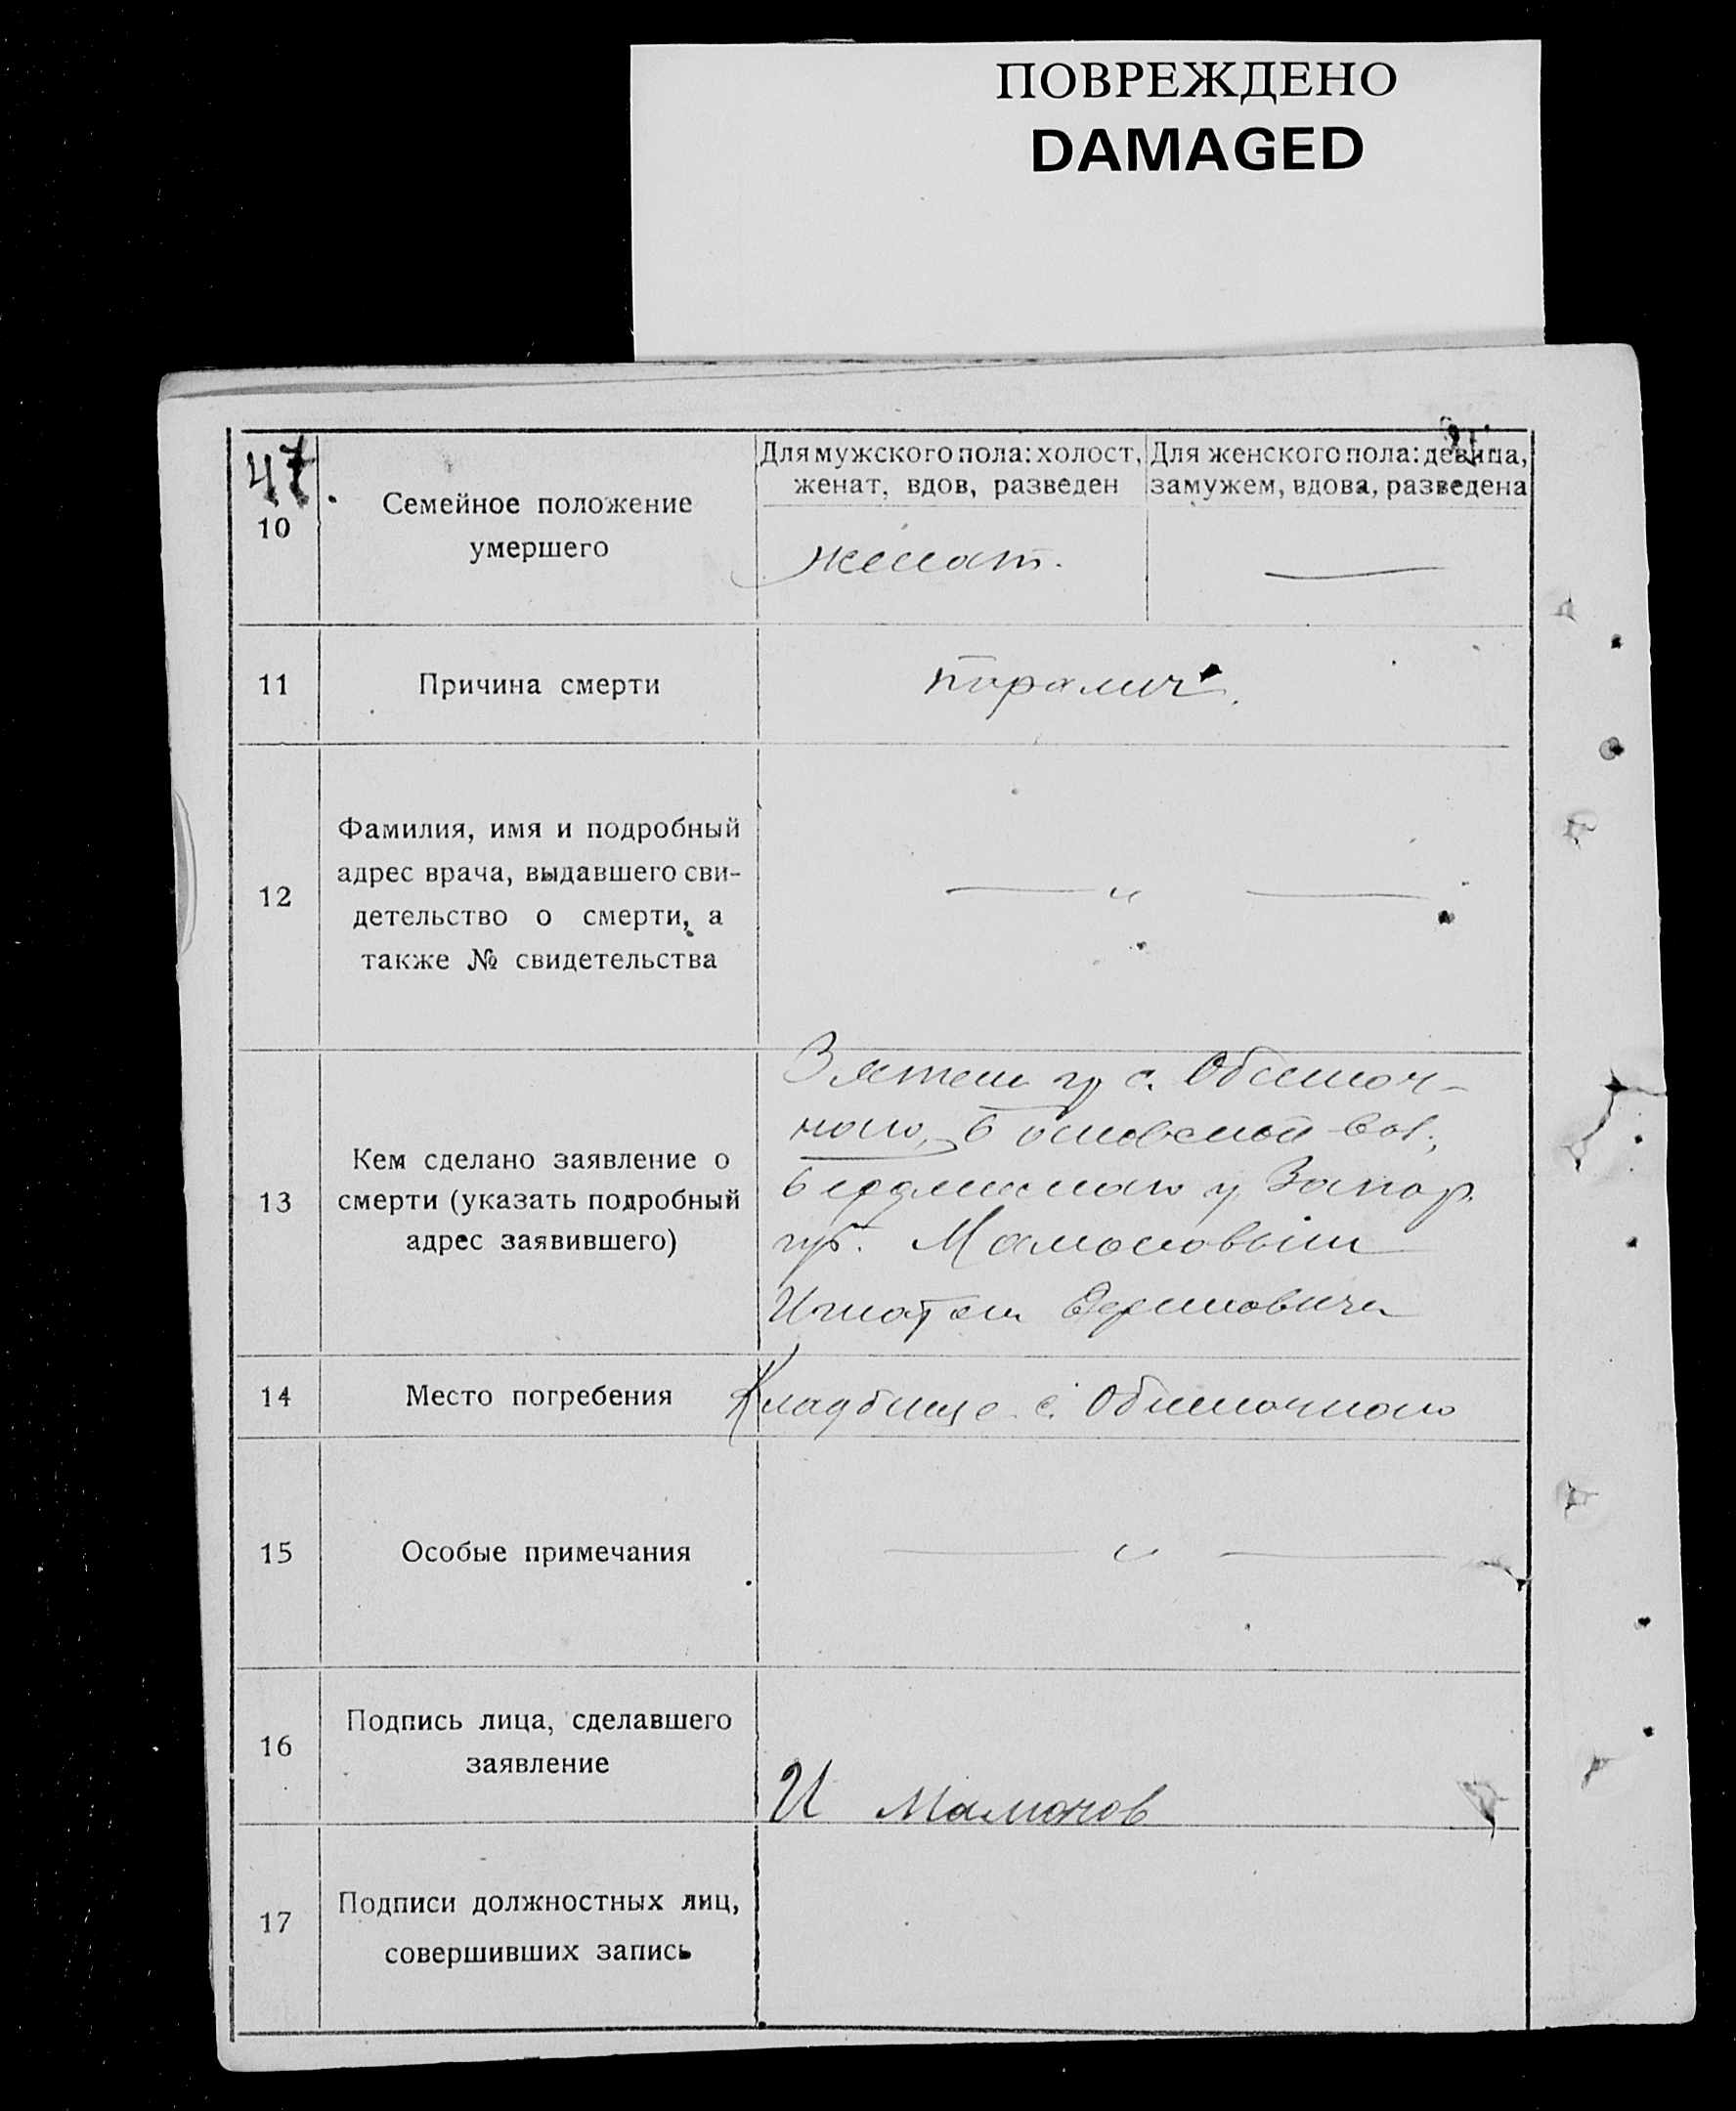 ПОВРЕЖДЕНО
DAMAGED
47.
10
Семейное положение
умершего
Для мужского пола: холост,
женат, вдов, разведен
Для женского пола: девица,
замужем, вдова, разведена
женат.
11
Причина смерти
паралич.
12
Фамилия, имя и подробный
адрес врача, выдавшего сви-
детельство о смерти, а
также № свидетельства
— „ —
13
Кем сделано заявление о
смерти (указать подробный
адрес заявившего)
Зятем гр с. Обиточ-
ного, вол,
Бердянского у Запор.
губ. Мамоновым
Игнатом
14
Место погребения
Кладбище с. Обиточного
15
Особые примечания
— „ —
16
Подпись лица, сделавшего
заявление
И Мамонов
17
Подписи должностных лиц,
совершивших запись